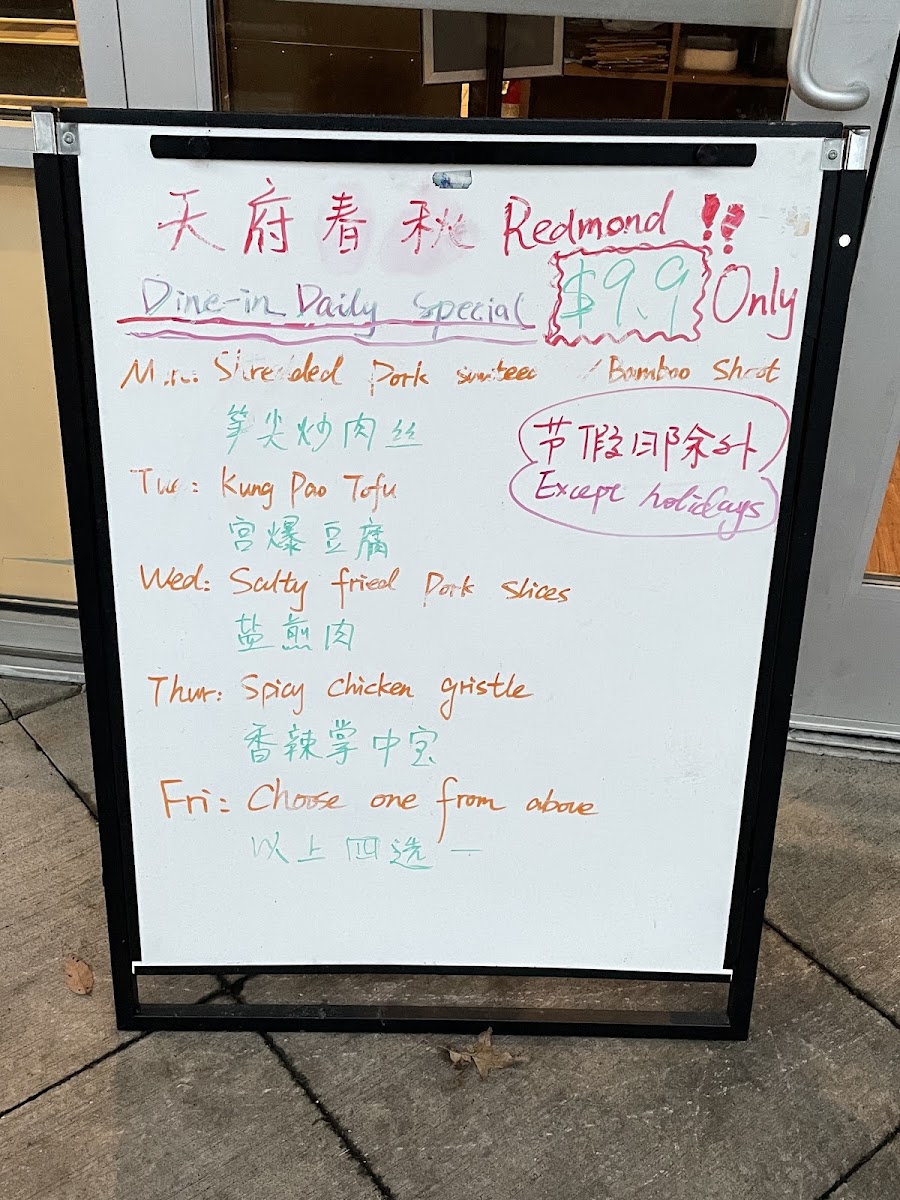 天府春秋 Redmond !!
Dine-in Daily Special $9.9 Only
Shredded Pork / Bamboo Shoot
笋尖炒肉丝
节假日除外
Except holidays
Tue: Kung Pao Tofu
宫爆豆腐
Wed: Salty fried Pork Slices
盐煎肉
Thur: Spicy chicken gristle
香辣掌中宝
Fri: Choose one from above
以上四选一